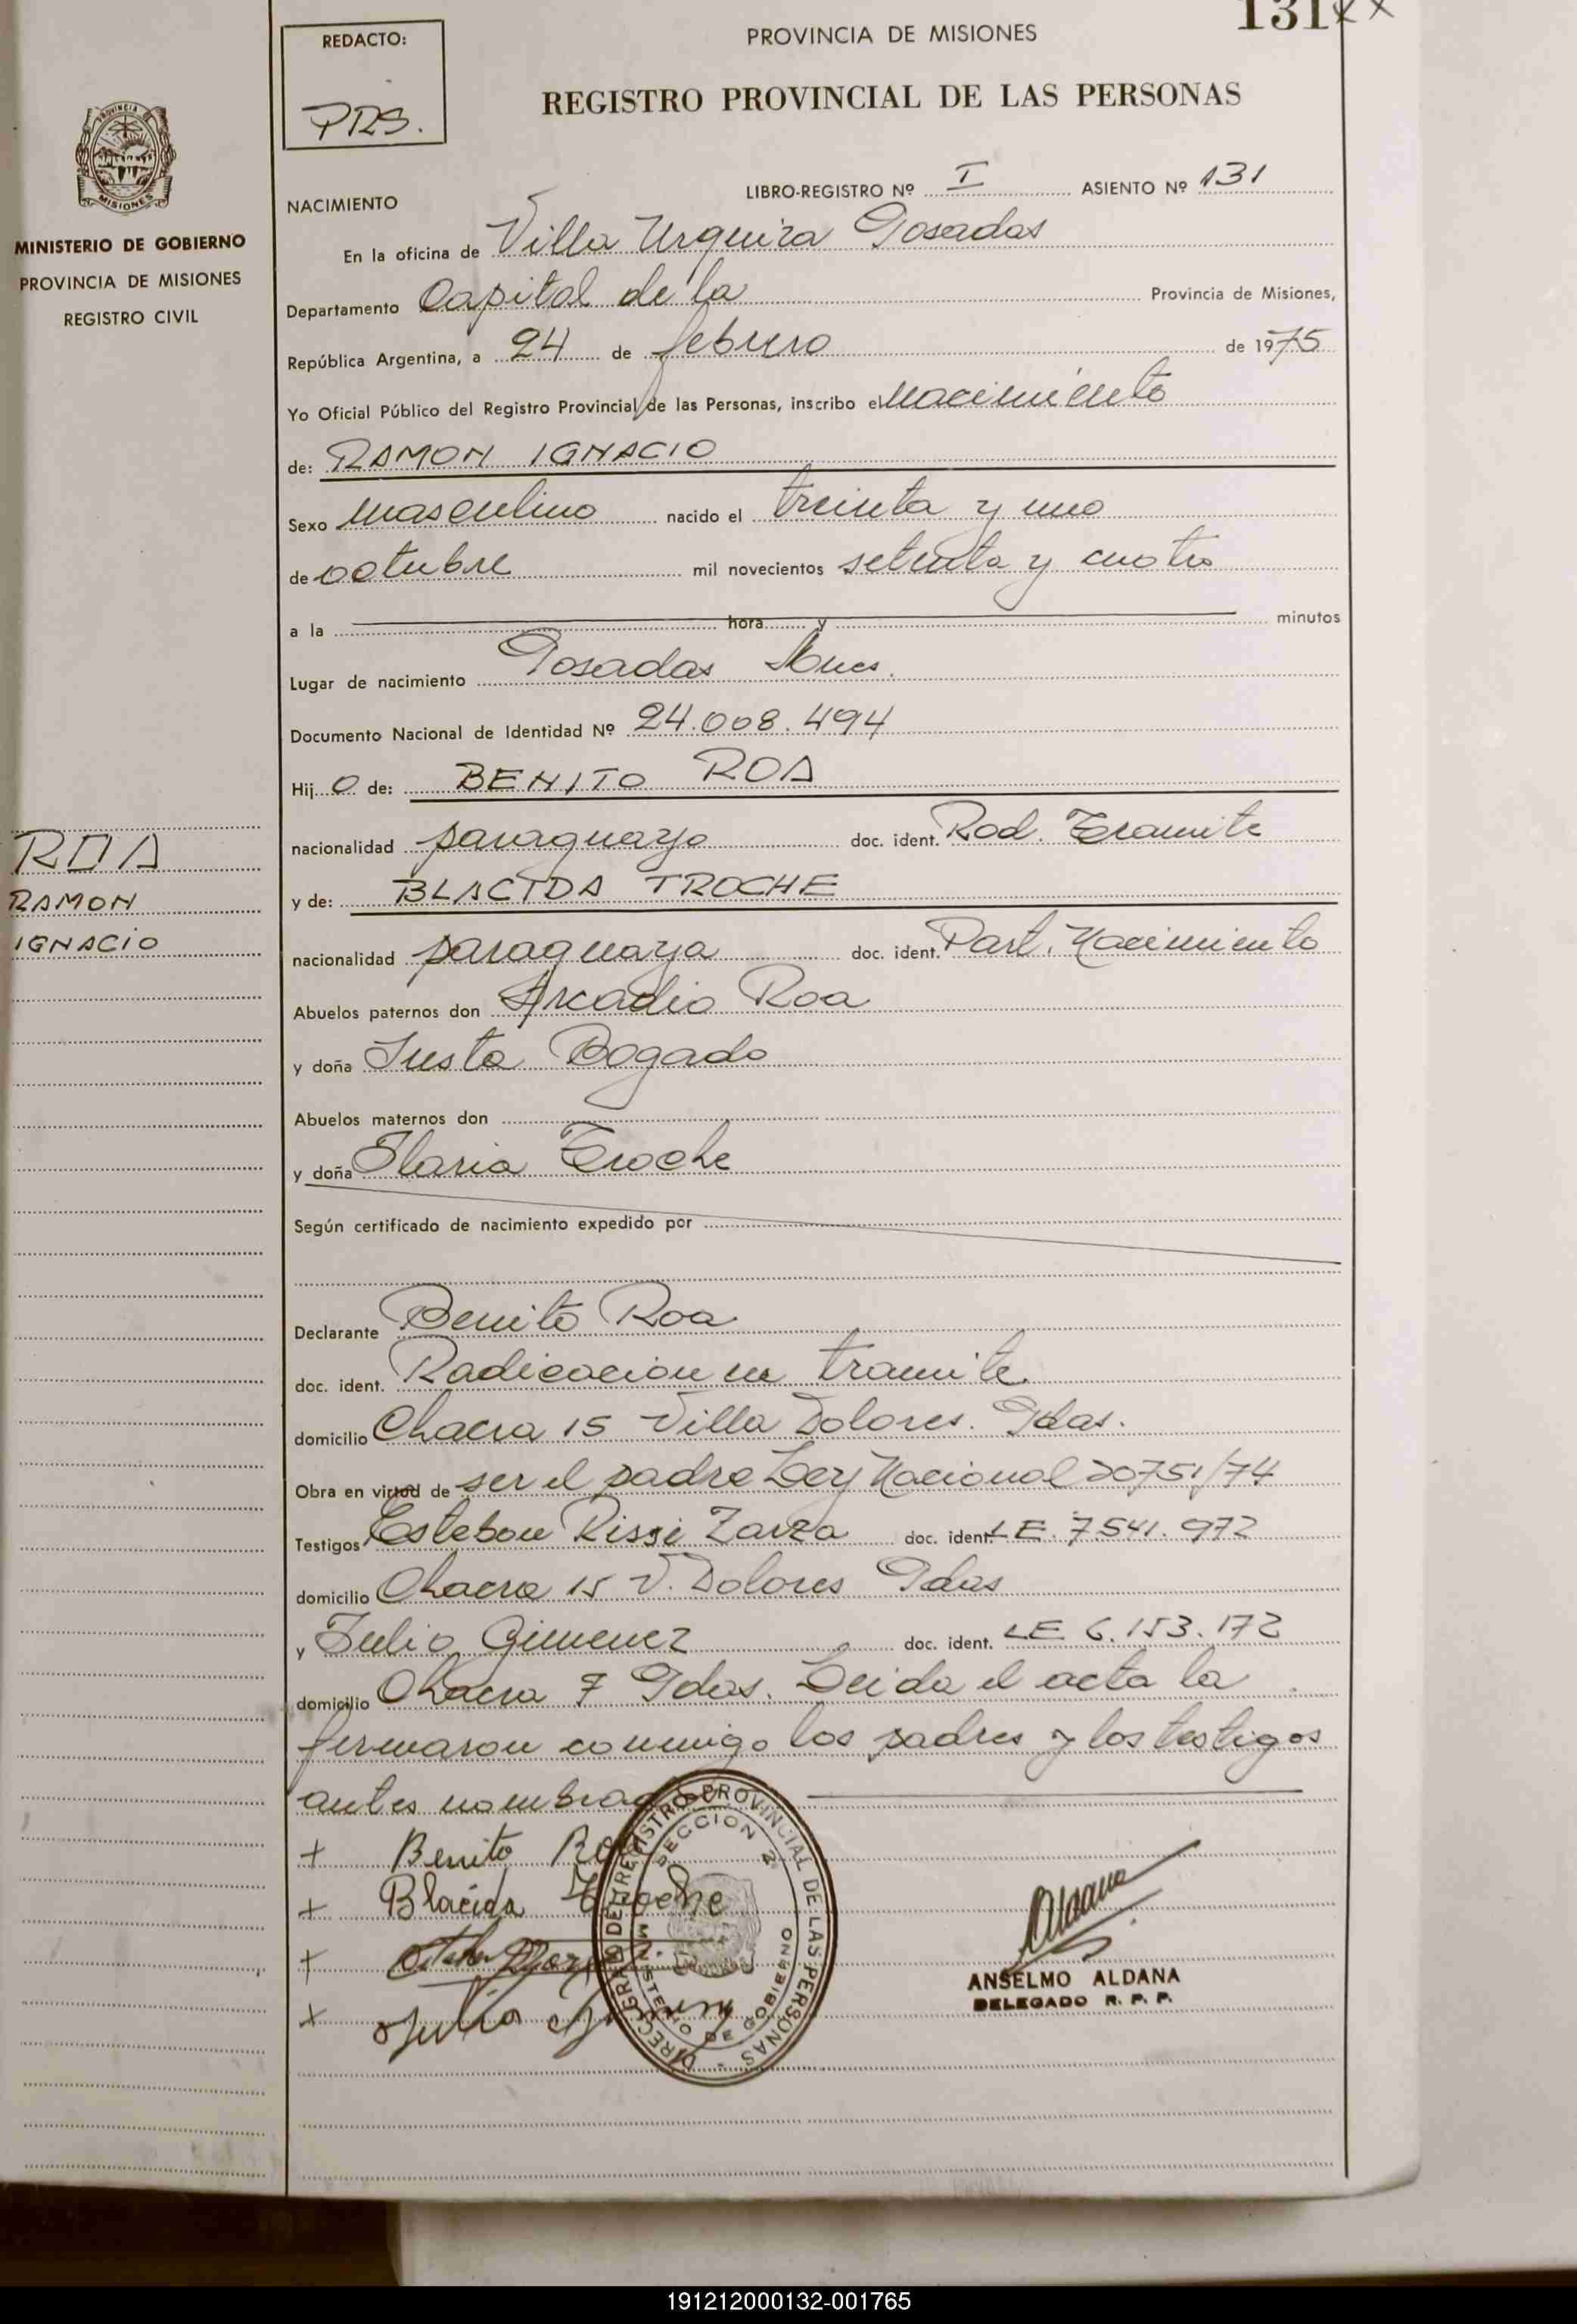 131
REDACTO:
PRS.
PROVINCIA DE MISIONES
REGISTRO PROVINCIAL DE LAS PERSONAS
PROVINCIA
MISIONES
MINISTERIO DE GOBIERNO
PROVINCIA DE MISIONES
REGISTRO CIVIL
NACIMIENTO
LIBRO-REGISTRO Nº I ASIENTO Nº 131
En la oficina de Villa Urquiza Posadas
Departamento Capital de la Provincia de Misiones,
República Argentina, a 24 de febrero de 1975
Yo Oficial Público del Registro Provincial de las Personas, inscribo el Nacimiento
de: RAMON IGNACIO
Sexo masculino nacido el treinta y uno
de octubre mil novecientos setenta y cuatro
a la hora y minutos
Lugar de nacimiento Posadas Mnes.
Documento Nacional de Identidad Nº 24.008.494
Hijo de: BENITO ROA
nacionalidad paraguayo doc. ident. Rad. Tramite
y de: BLACIDA TROCHE
nacionalidad paraguaya doc. ident. Part. Nacimiento
ROA
RAMON
IGNACIO
Abuelos paternos don Arcadio Roa
y doña Justa Bogado
Abuelos maternos don
y doña Ilaria Troche
Según certificado de nacimiento expedido por
Declarante Benito Roa
doc. ident. Radicacion en tramite.
domicilio Chacra 15 Villa Dolores. Pdas.
Obra en virtud de ser el padre Ley Nacional 20751/74
Testigos Esteban Zarza doc. ident. LE. 7.541.972
domicilio Chacra 15 V. Dolores Pdas
y Julio Gimenez doc. ident. LE 6.153.172
domicilio Chacra 7 Pdas. Leida el acta la
firmaron conmigo los padres y los testigos
antes nombrados
+ Benito Roa
+ Blacida Troche
+
+ Julio
DIREC. GRAL. DEL REGISTRO PROVINCIAL DE LAS PERSONAS
SECCION 2ª
MINISTERIO DE GOBIERNO
Aldana
ANSELMO ALDANA
DELEGADO R. P. P.
191212000132-001765